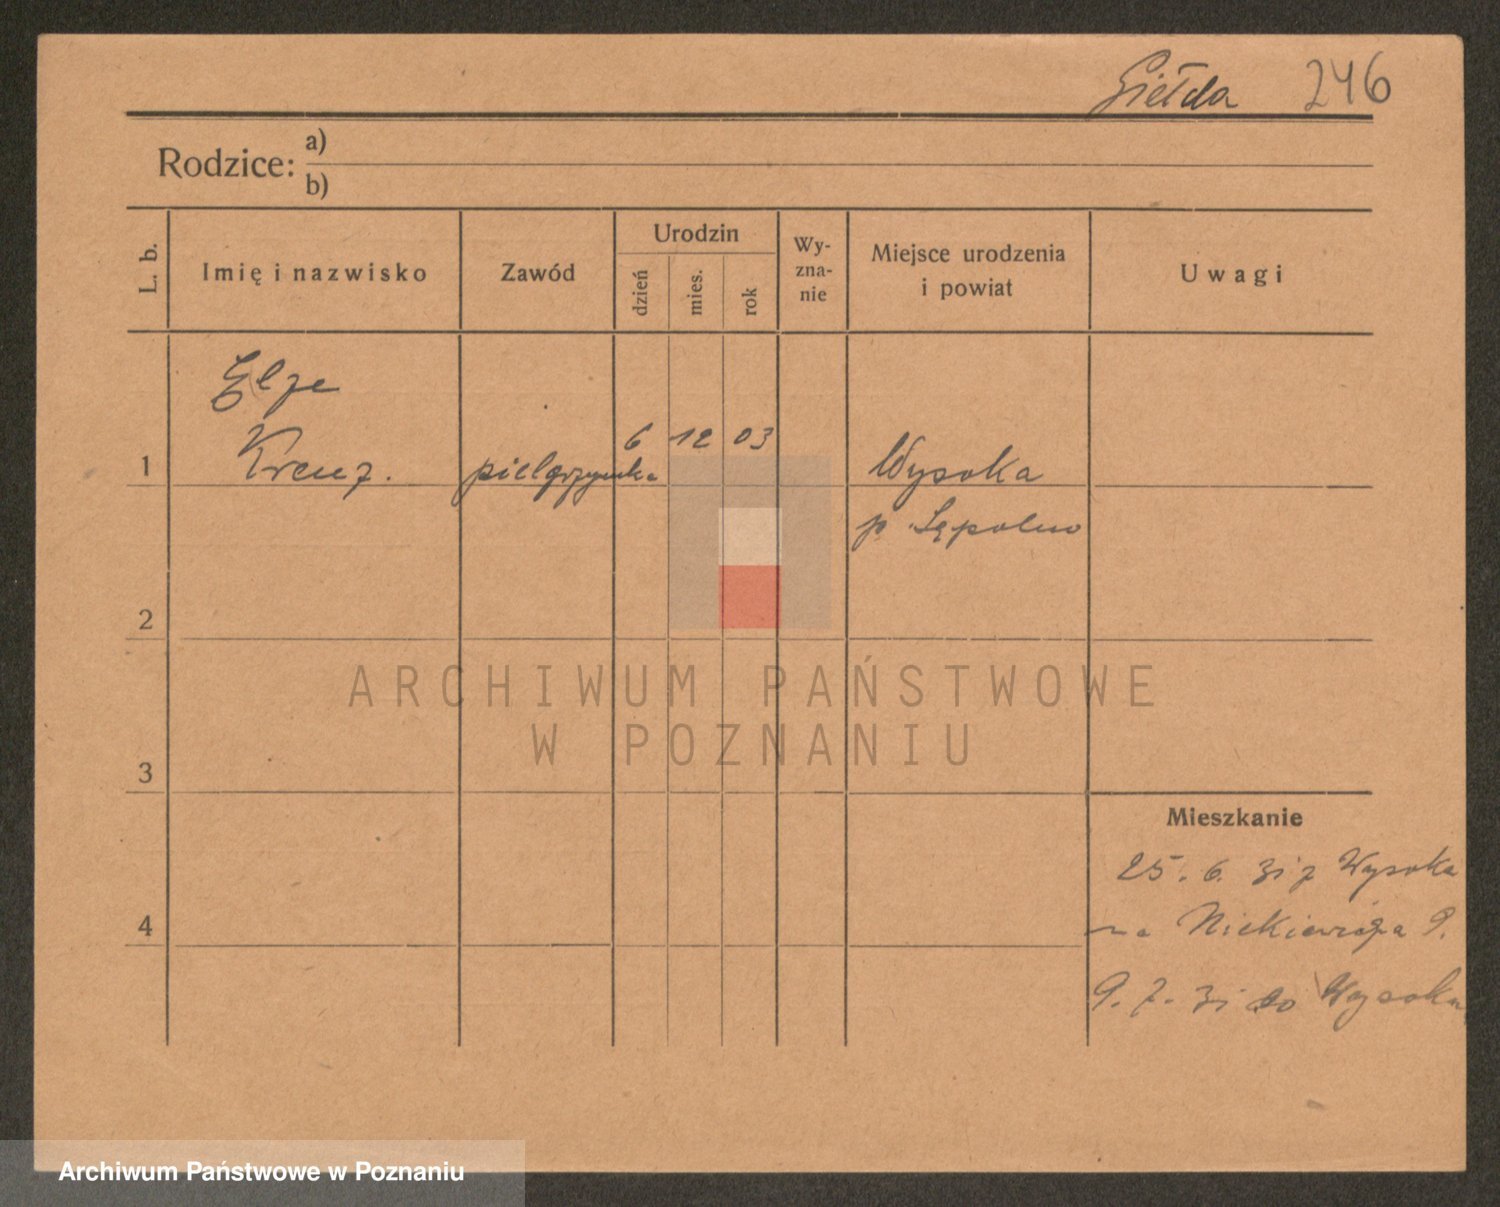 Giełda 246
Rodzice: a)
b)
L. b.
Imię i nazwisko
Zawód
Urodzin
dzień
mies.
rok
Wy-
zna-
nie
Miejsce urodzenia
i powiat
Uwagi
Elze
1 Kreuz. pielgrzymka 6 12 03 Wysoka
p. Sępolno
2
ARCHIWUM PAŃSTWOWE
W POZNANIU
3
Mieszkanie
25. 6. 31 z Wysoka
4
na 9.
9. 7. 31 do Wysoka
Archiwum Państwowe w Poznaniu